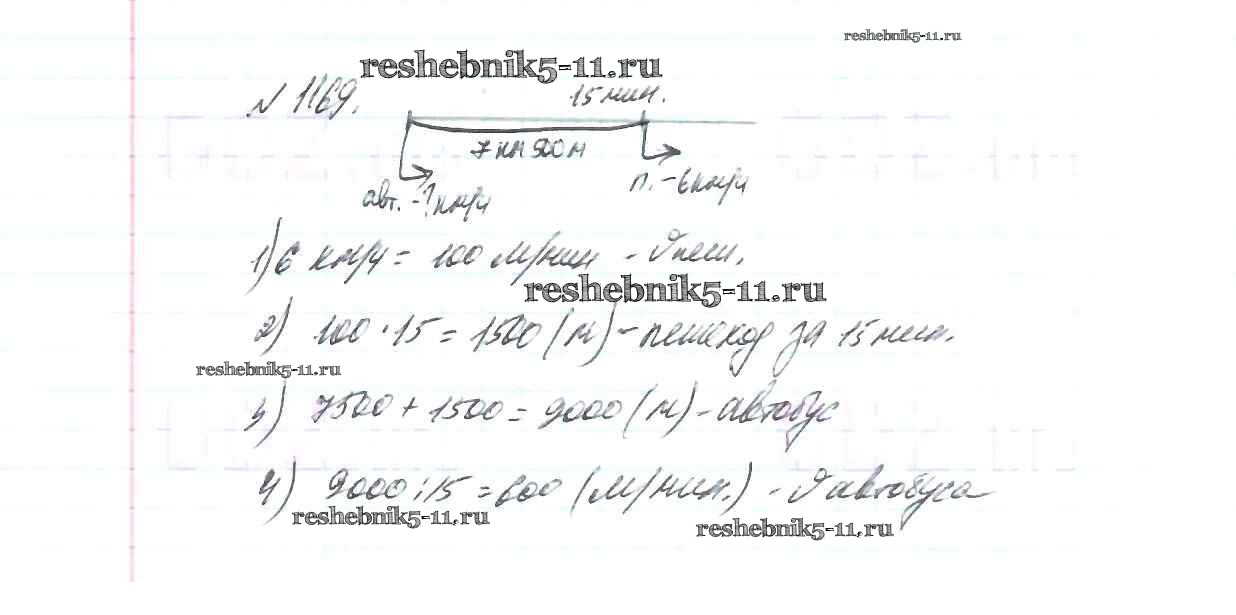 reshebnik5-11.ru
reshebnik5-11.ru
№ 1169.
15 мин.
7 км 500 м
п. - 6 км/ч
авт. - ? км/ч
1) 6 км/ч = 100 м/мин - υ пеш.
reshebnik5-11.ru
2) 100 · 15 = 1500 (м) - пешеход за 15 мин.
reshebnik5-11.ru
3) 7500 + 1500 = 9000 (м) - автобус
4) 9000 : 15 = 600 (м/мин.) - υ автобуса
reshebnik5-11.ru
reshebnik5-11.ru